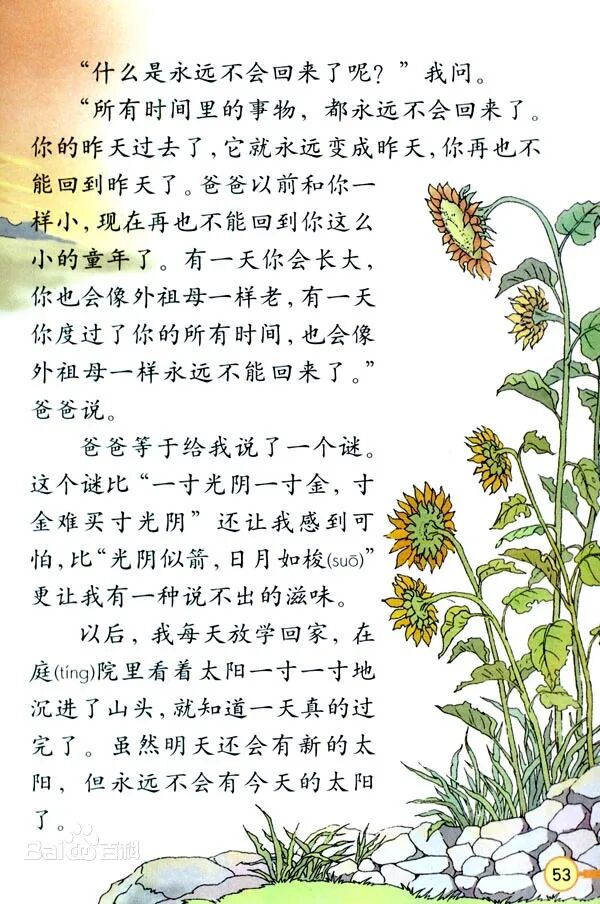 “什么是永远不会回来了呢？”我问。
“所有时间里的事物，都永远不会回来了。
你的昨天过去了，它就永远变成昨天，你再也不
能回到昨天了。爸爸以前和你一
样小，现在再也不能回到你这么
小的童年了。有一天你会长大，
你也会像外祖母一样老，有一天
你度过了你的所有时间，也会像
外祖母一样永远不能回来了。”
爸爸说。
爸爸等于给我说了一个谜。
这个谜比“一寸光阴一寸金，寸
金难买寸光阴”还让我感到可
怕，比“光阴似箭，日月如梭(suō)”
更让我有一种说不出的滋味。
以后，我每天放学回家，在
庭(tíng)院里看着太阳一寸一寸地
沉进了山头，就知道一天真的过
完了。虽然明天还会有新的太
阳，但永远不会有今天的太阳
了。
Bai百科
53